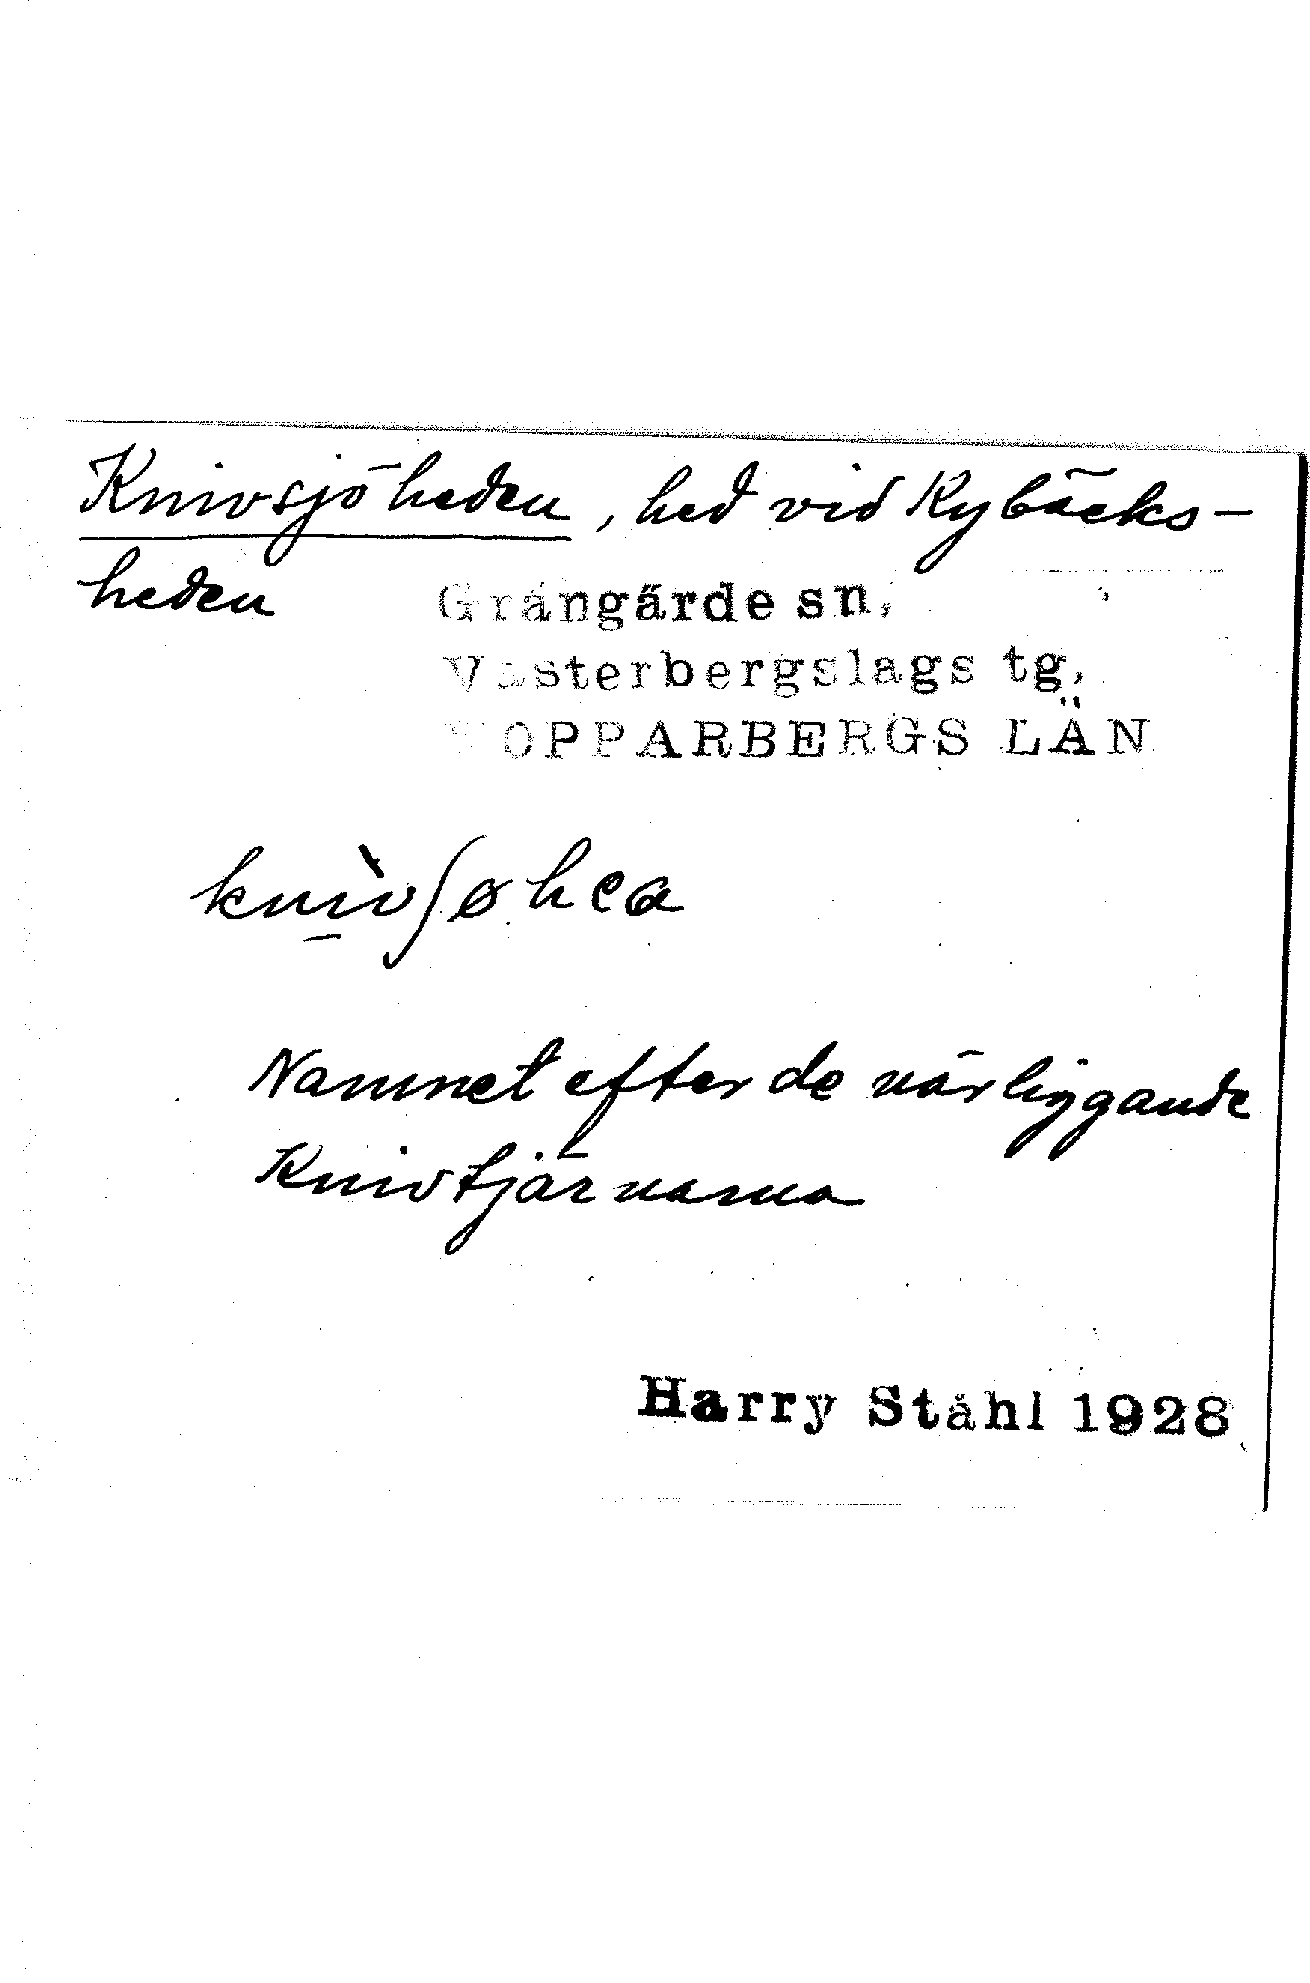 Knivsjöheden, hed vid Rybäcks-
heden
Grangärde sn,
Västerbergslags tg,
KOPPARBERGS LÄN
knìvʃøhea
Namnet efter de närliggande
Knivtjärnarna
Harry Ståhl 1928